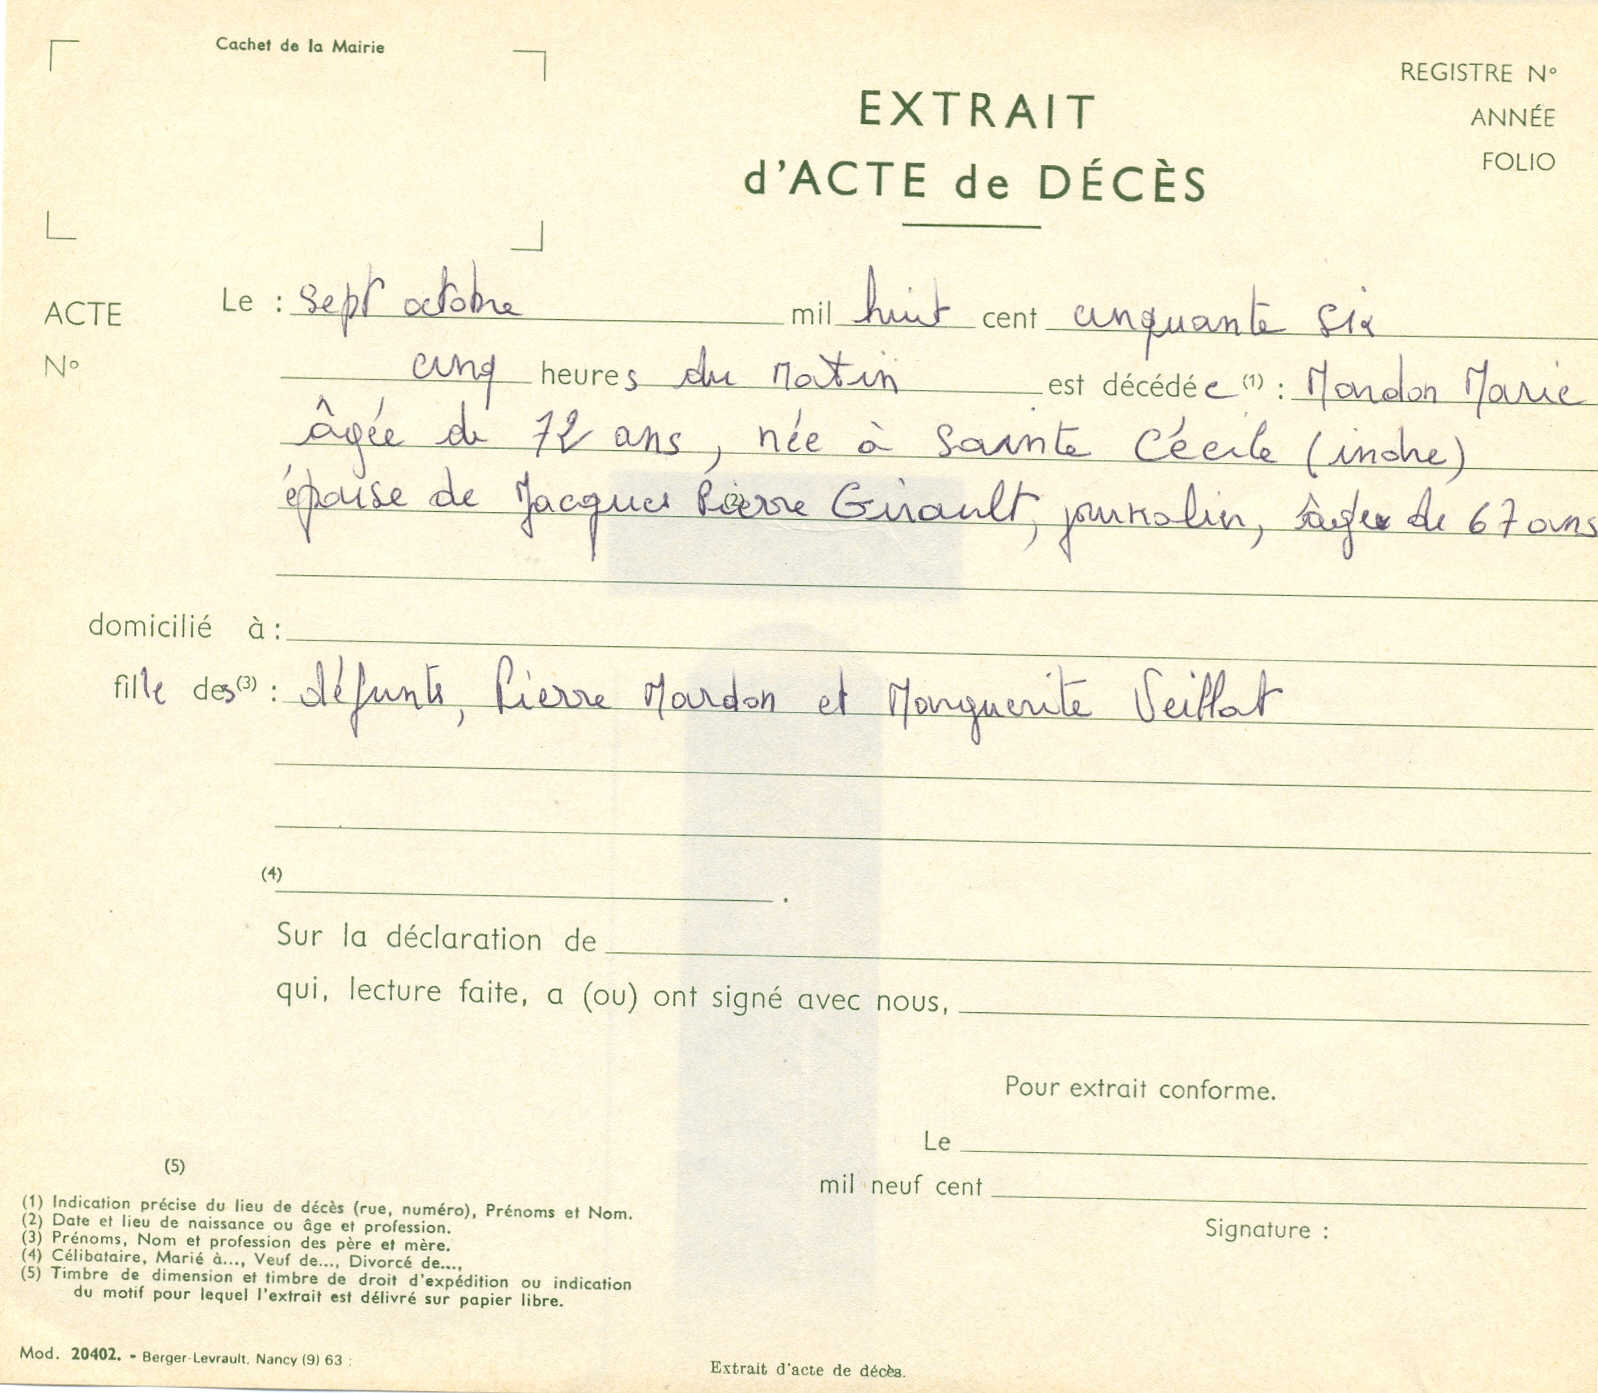 Cachet de la Mairie
REGISTRE N°
ANNÉE
FOLIO
EXTRAIT
d'ACTE de DÉCÈS
ACTE
N°
Le : sept octobre mil huit cent cinquante six
cinq heures du Matin est décédée (1) : Mardon Marie
âgée de 72 ans, née à Sainte Cécile (indre)
épouse de Jacques Pierre Girault, journalier, âgé de 67 ans
domicilié à :
fille des (3) : défunts, Pierre Mardon et Marguerite Veillat
(4) .
Sur la déclaration de
qui, lecture faite, a (ou) ont signé avec nous,
Pour extrait conforme.
Le
mil neuf cent
Signature :
(5)
(1) Indication précise du lieu de décès (rue, numéro), Prénoms et Nom.
(2) Date et lieu de naissance ou âge et profession.
(3) Prénoms, Nom et profession des père et mère.
(4) Célibataire, Marié à..., Veuf de..., Divorcé de...,
(5) Timbre de dimension et timbre de droit d'expédition ou indication
du motif pour lequel l'extrait est délivré sur papier libre.
Mod. 20402. - Berger-Levrault, Nancy (9) 63 :
Extrait d'acte de décès.